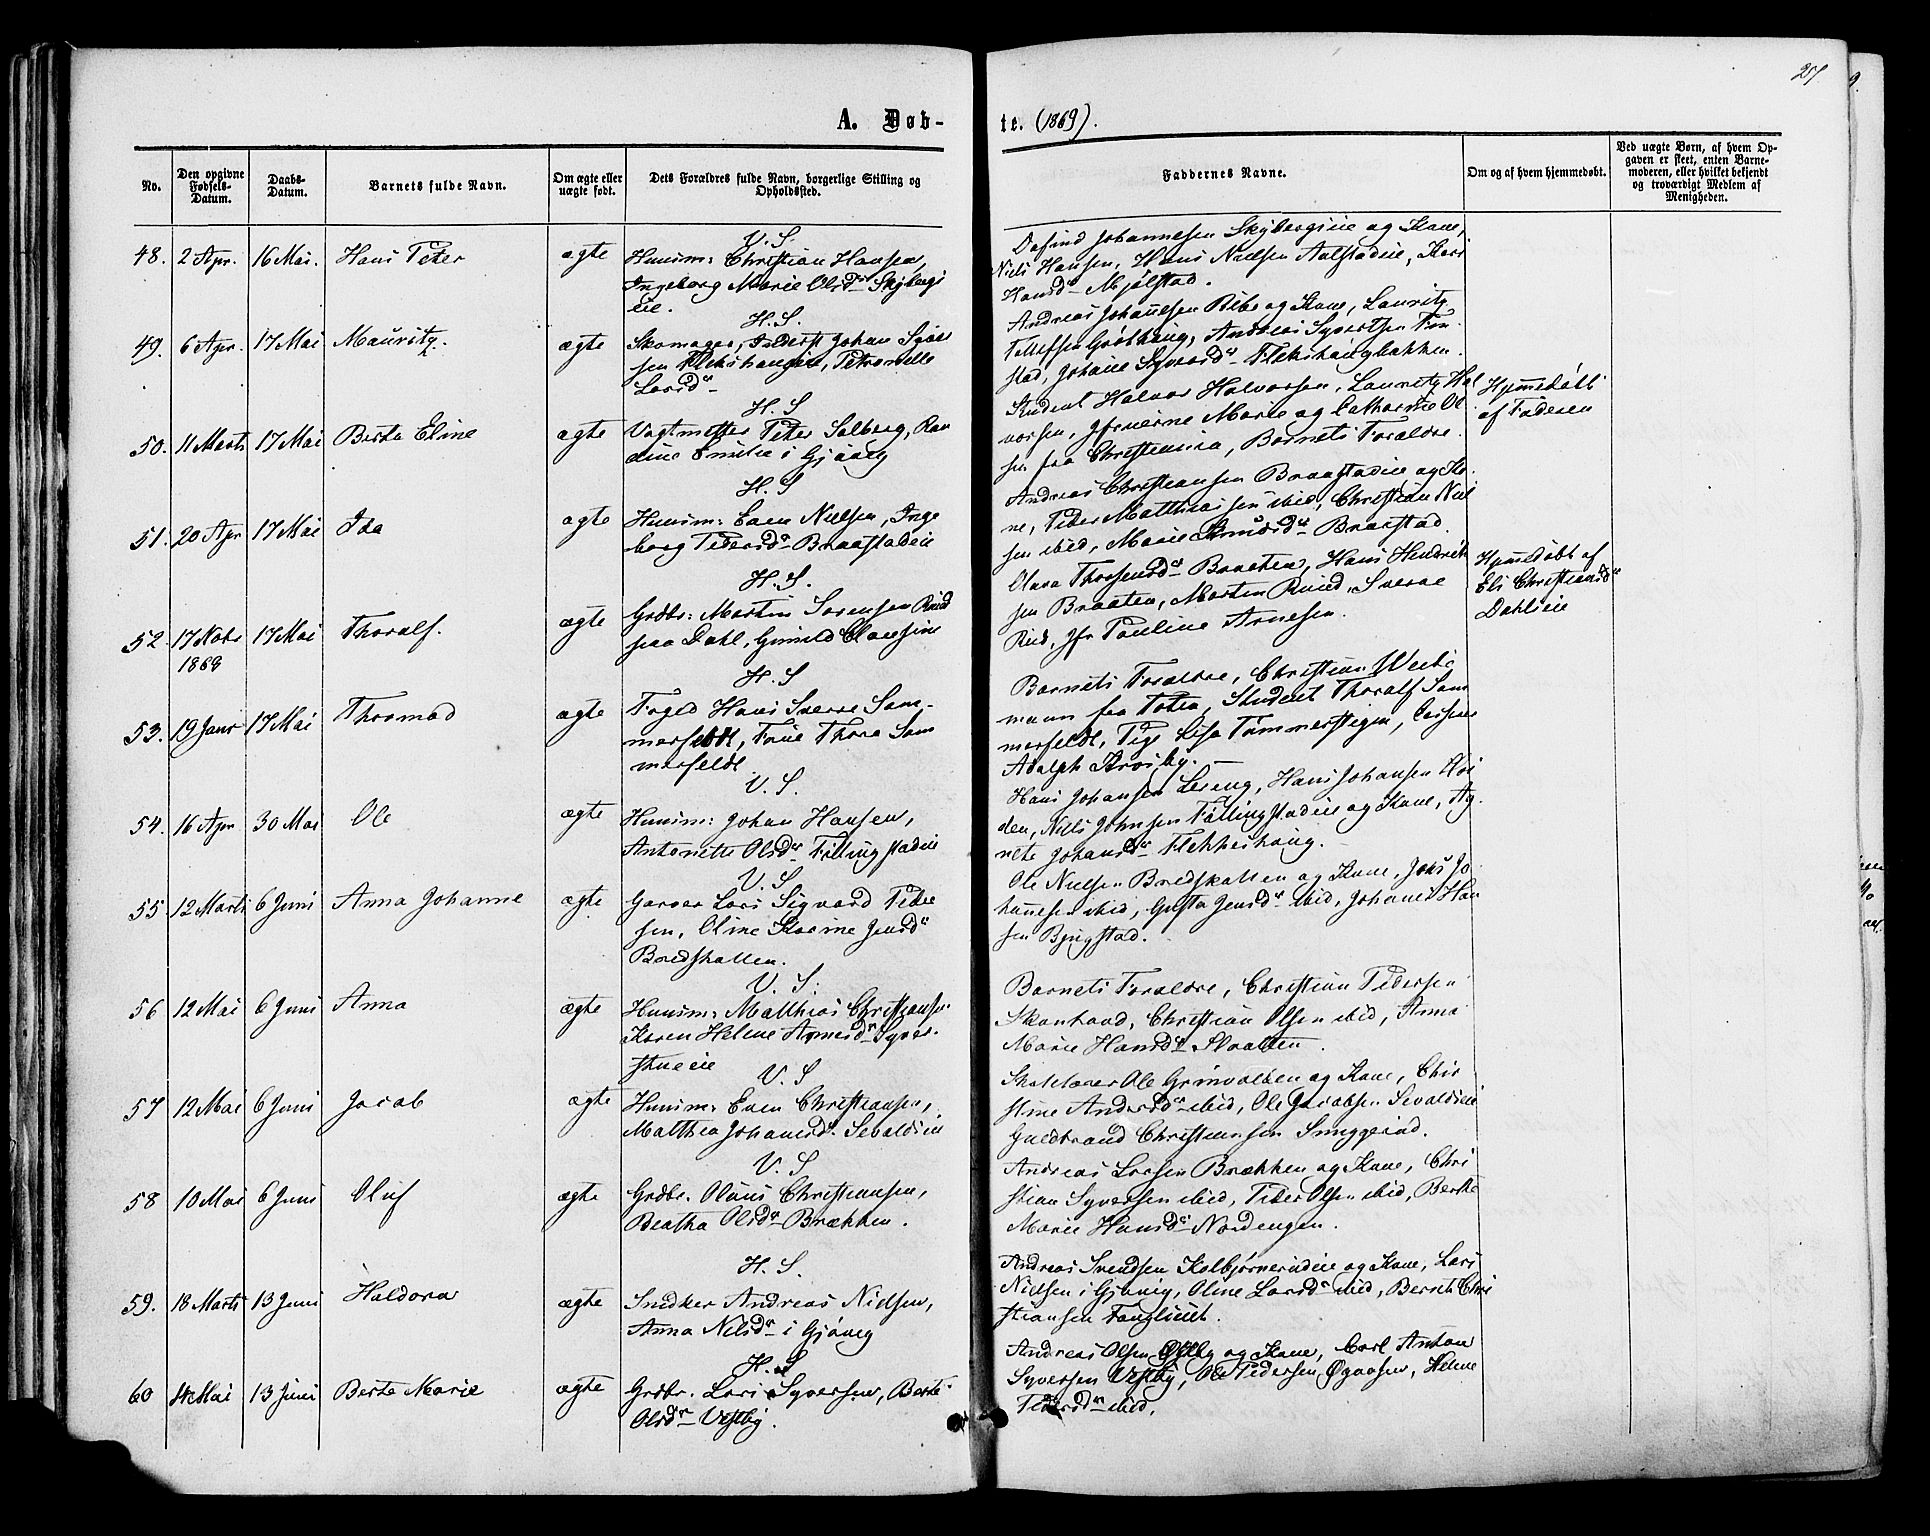 A. Døb-
te. (1869).
No.
Den opgivne Fødsels-Datum.
Daabs-Datum.
Barnets fulde Navn.
Om ægte eller uægte født.
Dets Forældres fulde Navn, borgerlige Stilling og Opholdssted.
Faddernes Navne.
Om og af hvem hjemmedøbt.
Ved uægte Børn, af hvem Opgaven er skeet, enten Barnemoderen, eller hvilket bekjendt og troværdigt Medlem af Menigheden.
V. S.
48. 2 Apr. 16 Mai. Hans Peter ægte Huusm: Christian Hansen,
Ingeborg Marie Olsdr Skybergs
eie.
Johannesen Skybergseie og Kone,
Niels Hansen, Hans Nielsen Aalstadeie, Kari
Hansdr Mjølstad.
H. S.
49. 6 Apr. 17 Mai Mauritz. ægte Skomager, Johan
sen Petronelle
Larsd
Andreas Johannesen Ribe og Kone, Lauritz
Andreas Syvertsen
stad, Johanne Syversdr Flekshaugbakken.
H. S
50. 11 Marts 17 Mai Berta Eline ægte Vagtmester Peter Solberg, Ran
dine Emilie i Gjøvig
Student Halvor Halvorsen, Lauritz Hal
vorsen, Jfruerne Marie og Cathrine Ol
sen fra Christiania, Barnets Forældre.
Hjemmedøbt
af Faderen
H. S
51. 20 Apr 17 Mai Ida ægte Huusm: Even Nielsen, Inge
borg Pedersdr Braastadeie
Andreas Christiansen Braastadeie og Ko
ne, Peder Matthiassen ibid, Christian Niel
sen ibid, Marie Knudsdr Braastad.
H. S.
52. 17 Novbr 17 Mai Thoralf. ægte Grdbr: Martin Sørensen Rud
1868
paa Dahl, Gunild Clausine
Olava Thorsensdr Braaten, Hans Hendrik
sen Braaten, Morten Ruud, Sverre
Rud, Jfr Pauline Arnesen.
Hjemmedøbt af
Eli Christiansdr
Dahlseie
H. S
53. 19 Janr 17 Mai Thormod ægte Foged Hans Sverre Som-
merfeldt, Frue Thora Som
merfeldt
Barnets Forældre, Christian Weide
mann fra Toten, Student Thoralf Som
merfeldt, Pige Lisa Tømmerstigen,
Adolph
V. S.
54. 16 Apr 30 Mai Ole ægte Huusm: Johan Hansen,
Antonette Olsdr Fillingstadeie
Hans Johansen Lereng, Hans Johansen
den, Niels Johnsen Fillingstadeie og Kone, Ag
nete Johansdr Flekkeshaug.
V. S
55 12 Marts 6 Juni Anna Johanne ægte Garver Lars Sigvard Peder
sen, Oline Karine Jensdr
Bredskallen.
Ole Nielsen Bredskallen og Kone, Jens Jo
hannesen ibid, Gusta Jensdr ibid, Johannes Han
sen Bjugstad.
V. S.
56 12 Mai 6 Juni Anna ægte Huusm: Matthias Christiansen
Karen Helene Arnesdr Syver-
stueeie
Barnets Forældre, Christian Pedersen
Christian Olsen ibid, Anna
Marie Hansdr Skrabben.
V. S
57 12 Mai 6 Juni Jacob ægte Huusm: Even Christiansen,
Matthea Johansdr Sevaldseie
Skolelærer Ole Grimvolden og Kone, Chri
stine Andersdr ibid, Ole Jacobsen Sevaldseie
Guldbrand Christiansen Snuggerud.
V. S
58 10 Mai 6 Juni Oluf ægte Grdbr. Olaus Christiansen,
Beatha Olsdr Brækken.
Andreas Larsen Brækken og Kone, Chri
stian Syversen ibid, Peder Olsen ibid, Berthe
Marie Hansdr Nordengen.
H. S.
59. 18 Marts 13 Juni Haldora ægte Snedker Andreas Nielsen,
Anna Nilsdr i Gjøvig
Andreas Svendsen Kolbjørnerudeie og Kone, Lars
Nielsen i Gjøvig, Oline Larsdr ibid, Bernth Chri
stiansen
H. S
60 4 Mai 13 Juni Berte Marie ægte Grdbr. Lars Syversen, Berte
Olsdr Vestby.
Andreas Olsen Østby og Kone, Carl Anton
Syversen Vestby, Ole Pedersen Helene
Pedersdr ibid.